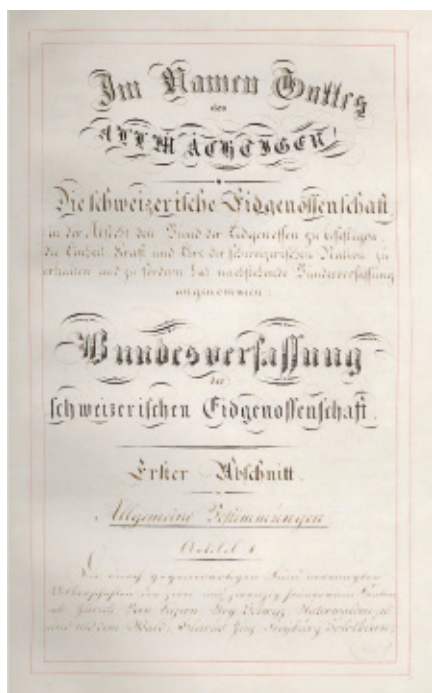 Im Namen Gottes
des
ALLMÄCHTIGEN!
Die schweizerische Eidgenossenschaft,
in der Absicht, den Bund der Eidgenossen zu befestigen,
die Einheit, Kraft und Ehre der schweizerischen Nation zu
erhalten und zu fördern, hat nachstehende Bundesverfassung
angenommen:
Bundesverfassung
der
schweizerischen Eidgenossenschaft.
Erster Abschnitt.
Allgemeine Bestimmungen
Artikel 1
Die durch gegenwärtigen Bund vereinigten
Völkerschaften der zwei und zwanzig souveränen Kantone,
als: Zürich, Bern, Luzern, Ury, Schwyz, Unterwalden, ob
und nid dem Wald, Glarus, Zug, Freyburg, Solothurn,